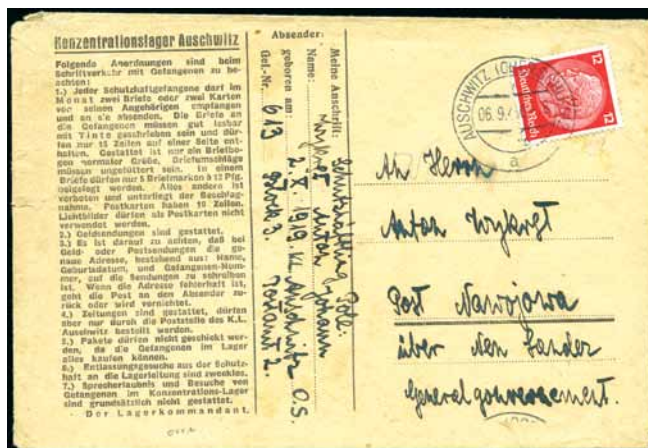 Konzentrationslager Auschwitz
Folgende Anordnungen sind beim
Schriftverkehr mit Gefangenen zu be-
achten:
1.) Jeder Schutzhaftgefangene darf im
Monat zwei Briefe oder zwei Karten
von seinen Angehörigen empfangen
und an sie absenden. Die Briefe an
die Gefangenen müssen gut lesbar
mit Tinte geschrieben sein und dür-
fen nur 15 Zeilen auf einer Seite ent-
halten. Gestattet ist nur ein Briefbo-
gen normaler Größe. Briefumschläge
müssen ungefüttert sein. In einem
Briefe dürfen nur 5 Briefmarken à 12 Pfg.
beigelegt werden. Alles andere ist
verboten und unterliegt der Beschlag-
nahme. Postkarten haben 10 Zeilen.
Lichtbilder dürfen als Postkarten nicht
verwendet werden.
2.) Geldsendungen sind gestattet.
3.) Es ist darauf zu achten, daß bei
Geld- oder Postsendungen die ge-
naue Adresse, bestehend aus: Name,
Geburtsdatum, und Gefangenen-Num-
mer, auf die Sendungen zu schreiben
ist. Wenn die Adresse fehlerhaft ist,
geht die Post an den Absender zu-
rück oder wird vernichtet.
4.) Zeitungen sind gestattet, dürfen
aber nur durch die Poststelle des K.L.
Auschwitz bestellt werden.
5.) Pakete dürfen nicht geschickt wer-
den, da die Gefangenen im Lager
alles kaufen können.
6.) Entlassungsgesuche aus der Schutz-
haft an die Lagerleitung sind zwecklos.
7.) Sprecherlaubnis und Besuche von
Gefangenen im Konzentrations-Lager
sind grundsätzlich nicht gestattet.
Der Lagerkommandant.
Absender:
Meine Anschrift: Schutzhäftling Pole.
Name: Anton Johann
geboren am: 2. X. 1919. KL. Auschwitz O.S.
Gef.-Nr. 613 Block 3.
AUSCHWITZ
06.9.4
a
12
Deutsches Reich
12
An Herrn
Anton
Post Nawojowa
über Neu Sandez
Generalgouvernement.